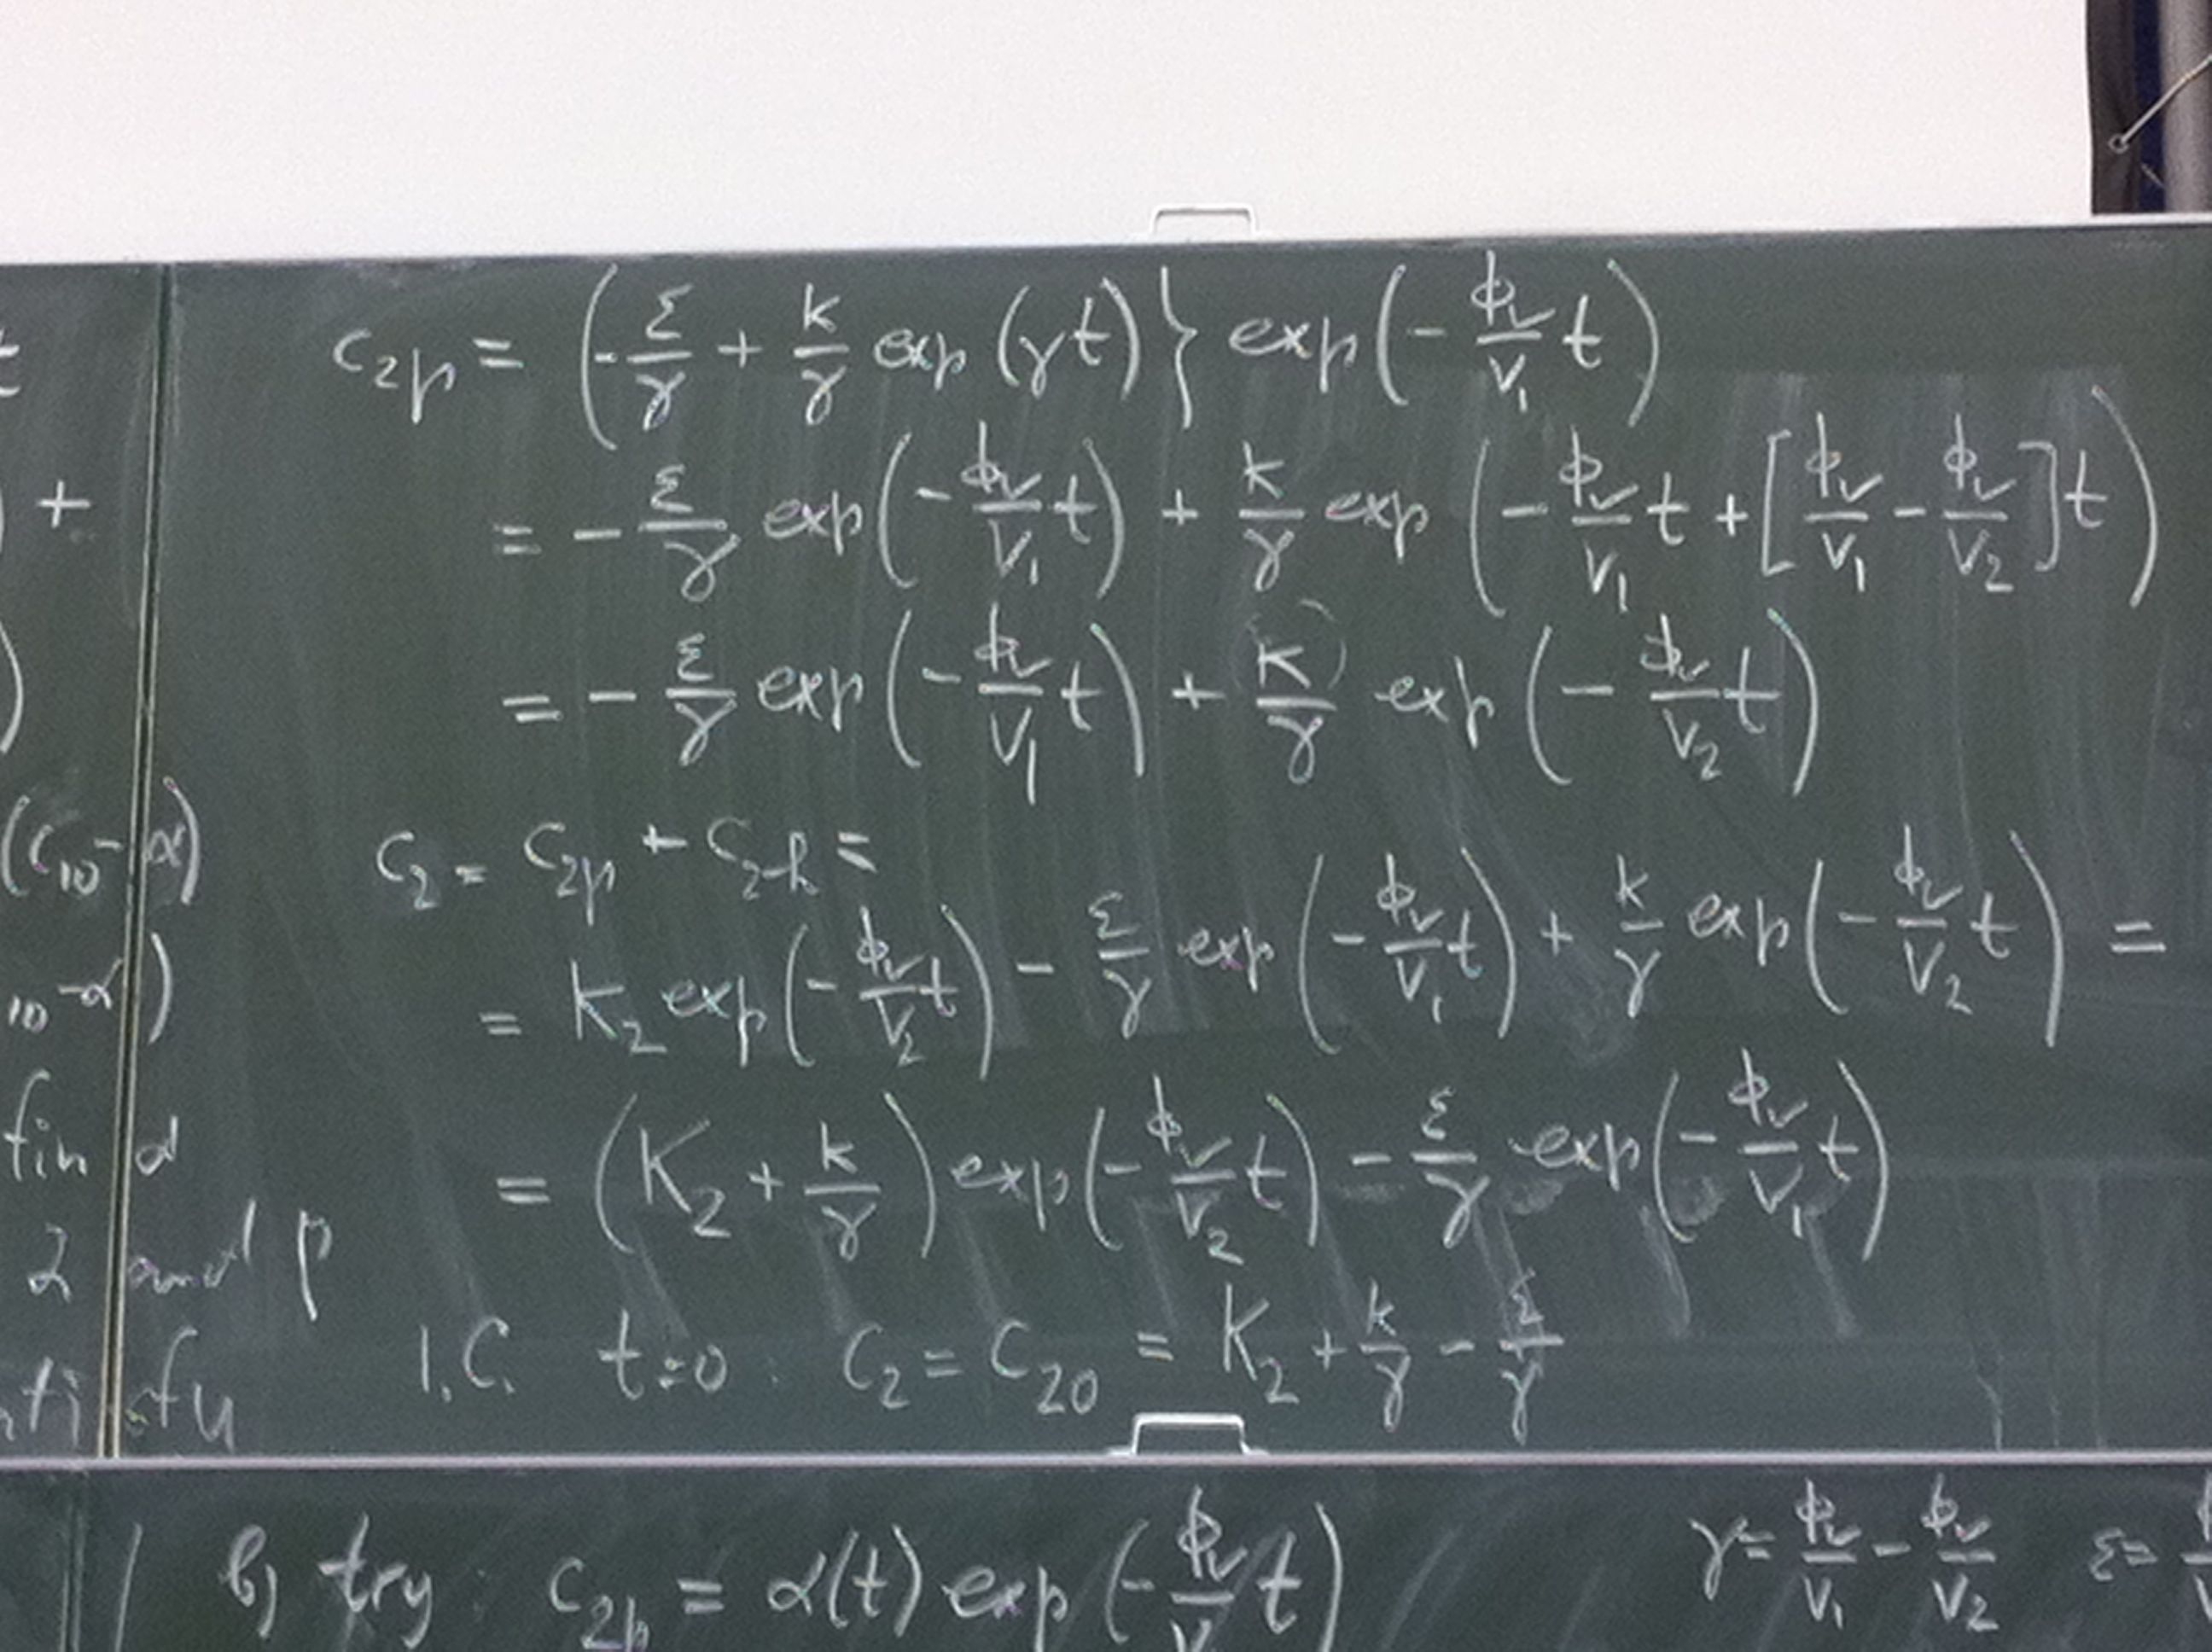 t
) +
)
(c₁₀-α)
₁₀-α)
find
2 and p
c₂ₚ = (-ε/γ + k/γ exp (γt)} exp(-ϕᵥ/V₁ t)
= - ε/γ exp(-ϕᵥ/V₁ t) + k/γ exp (-ϕᵥ/V₁ t + [ϕᵥ/V₁ - ϕᵥ/V₂]t)
= - ε/γ exp(-ϕᵥ/V₁ t) + k/γ exp (-ϕᵥ/V₂ t)
c₂ = c₂ₚ + c₂ₕ =
= K₂ exp(-ϕᵥ/V₂ t) - ε/γ exp (-ϕᵥ/V₁ t) + k/γ exp(-ϕᵥ/V₂ t) =
= (K₂ + k/γ) exp(-ϕᵥ/V₂ t) - ε/γ exp(-ϕᵥ/V₁ t)
I.C. t=0 : C₂ = C₂₀ = K₂ + k/γ - ε/γ
b) try : c₂ₚ = α(t) exp (-ϕᵥ/V t)
γ = ϕᵥ/V₁ - ϕᵥ/V₂ ε =